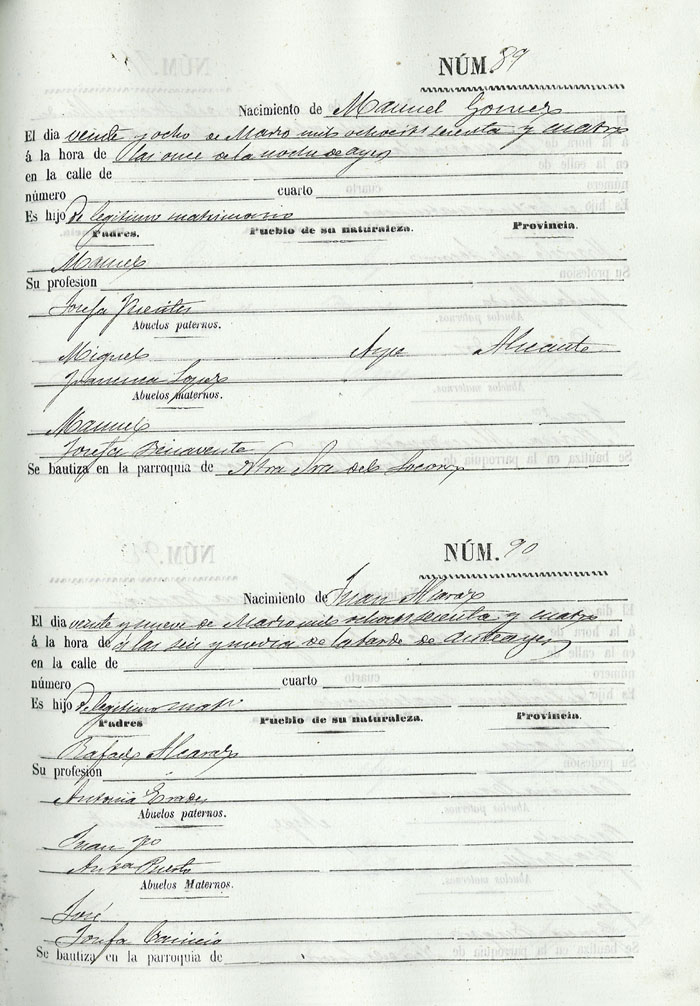 NÚM. 89
Nacimiento de Manuel Gomez
El dia veinte y ocho de Marzo mil ochocits sesenta y cuatro
á la hora de las once de la noche de ayer
en la calle de
número cuarto
Es hijo de legitimo matrimonio
Padres. Pueblo de su naturaleza. Provincia.
Manuel
Su profesion
Josefa Puentes
Abuelos paternos.
Miguel Aspe Alicante
Francisca Lopez
Abuelos maternos.
Manuel
Josefa Benavente
Se bautiza en la parroquia de Ntra Sra del Socorro
NÚM. 90
Nacimiento de Juan Alcaraz
El dia veinte y nueve de Marzo mil ochocits sesenta y cuatro
á la hora de á las seis y media de la tarde de anteayer
en la calle de
número cuarto
Es hijo de legitimo matr
Padres Pueblo de su naturaleza. Provincia.
Rafael Alcaraz
Su profesion
Antonia
Abuelos paternos.
Juan
Antª Puerto
Abuelos Maternos.
José
Josefa
Se bautiza en la parroquia de